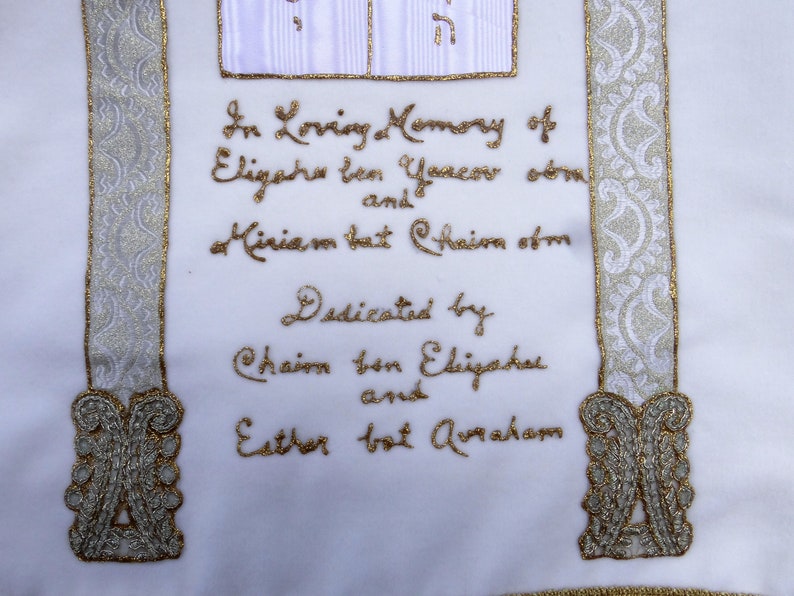 י ה
In Loving Memory of
Eliyahu ben Yaacov obm
and
Miriam bat Chaim obm
Dedicated by
Chaim ben Eliyahu
and
Esther bat Avraham